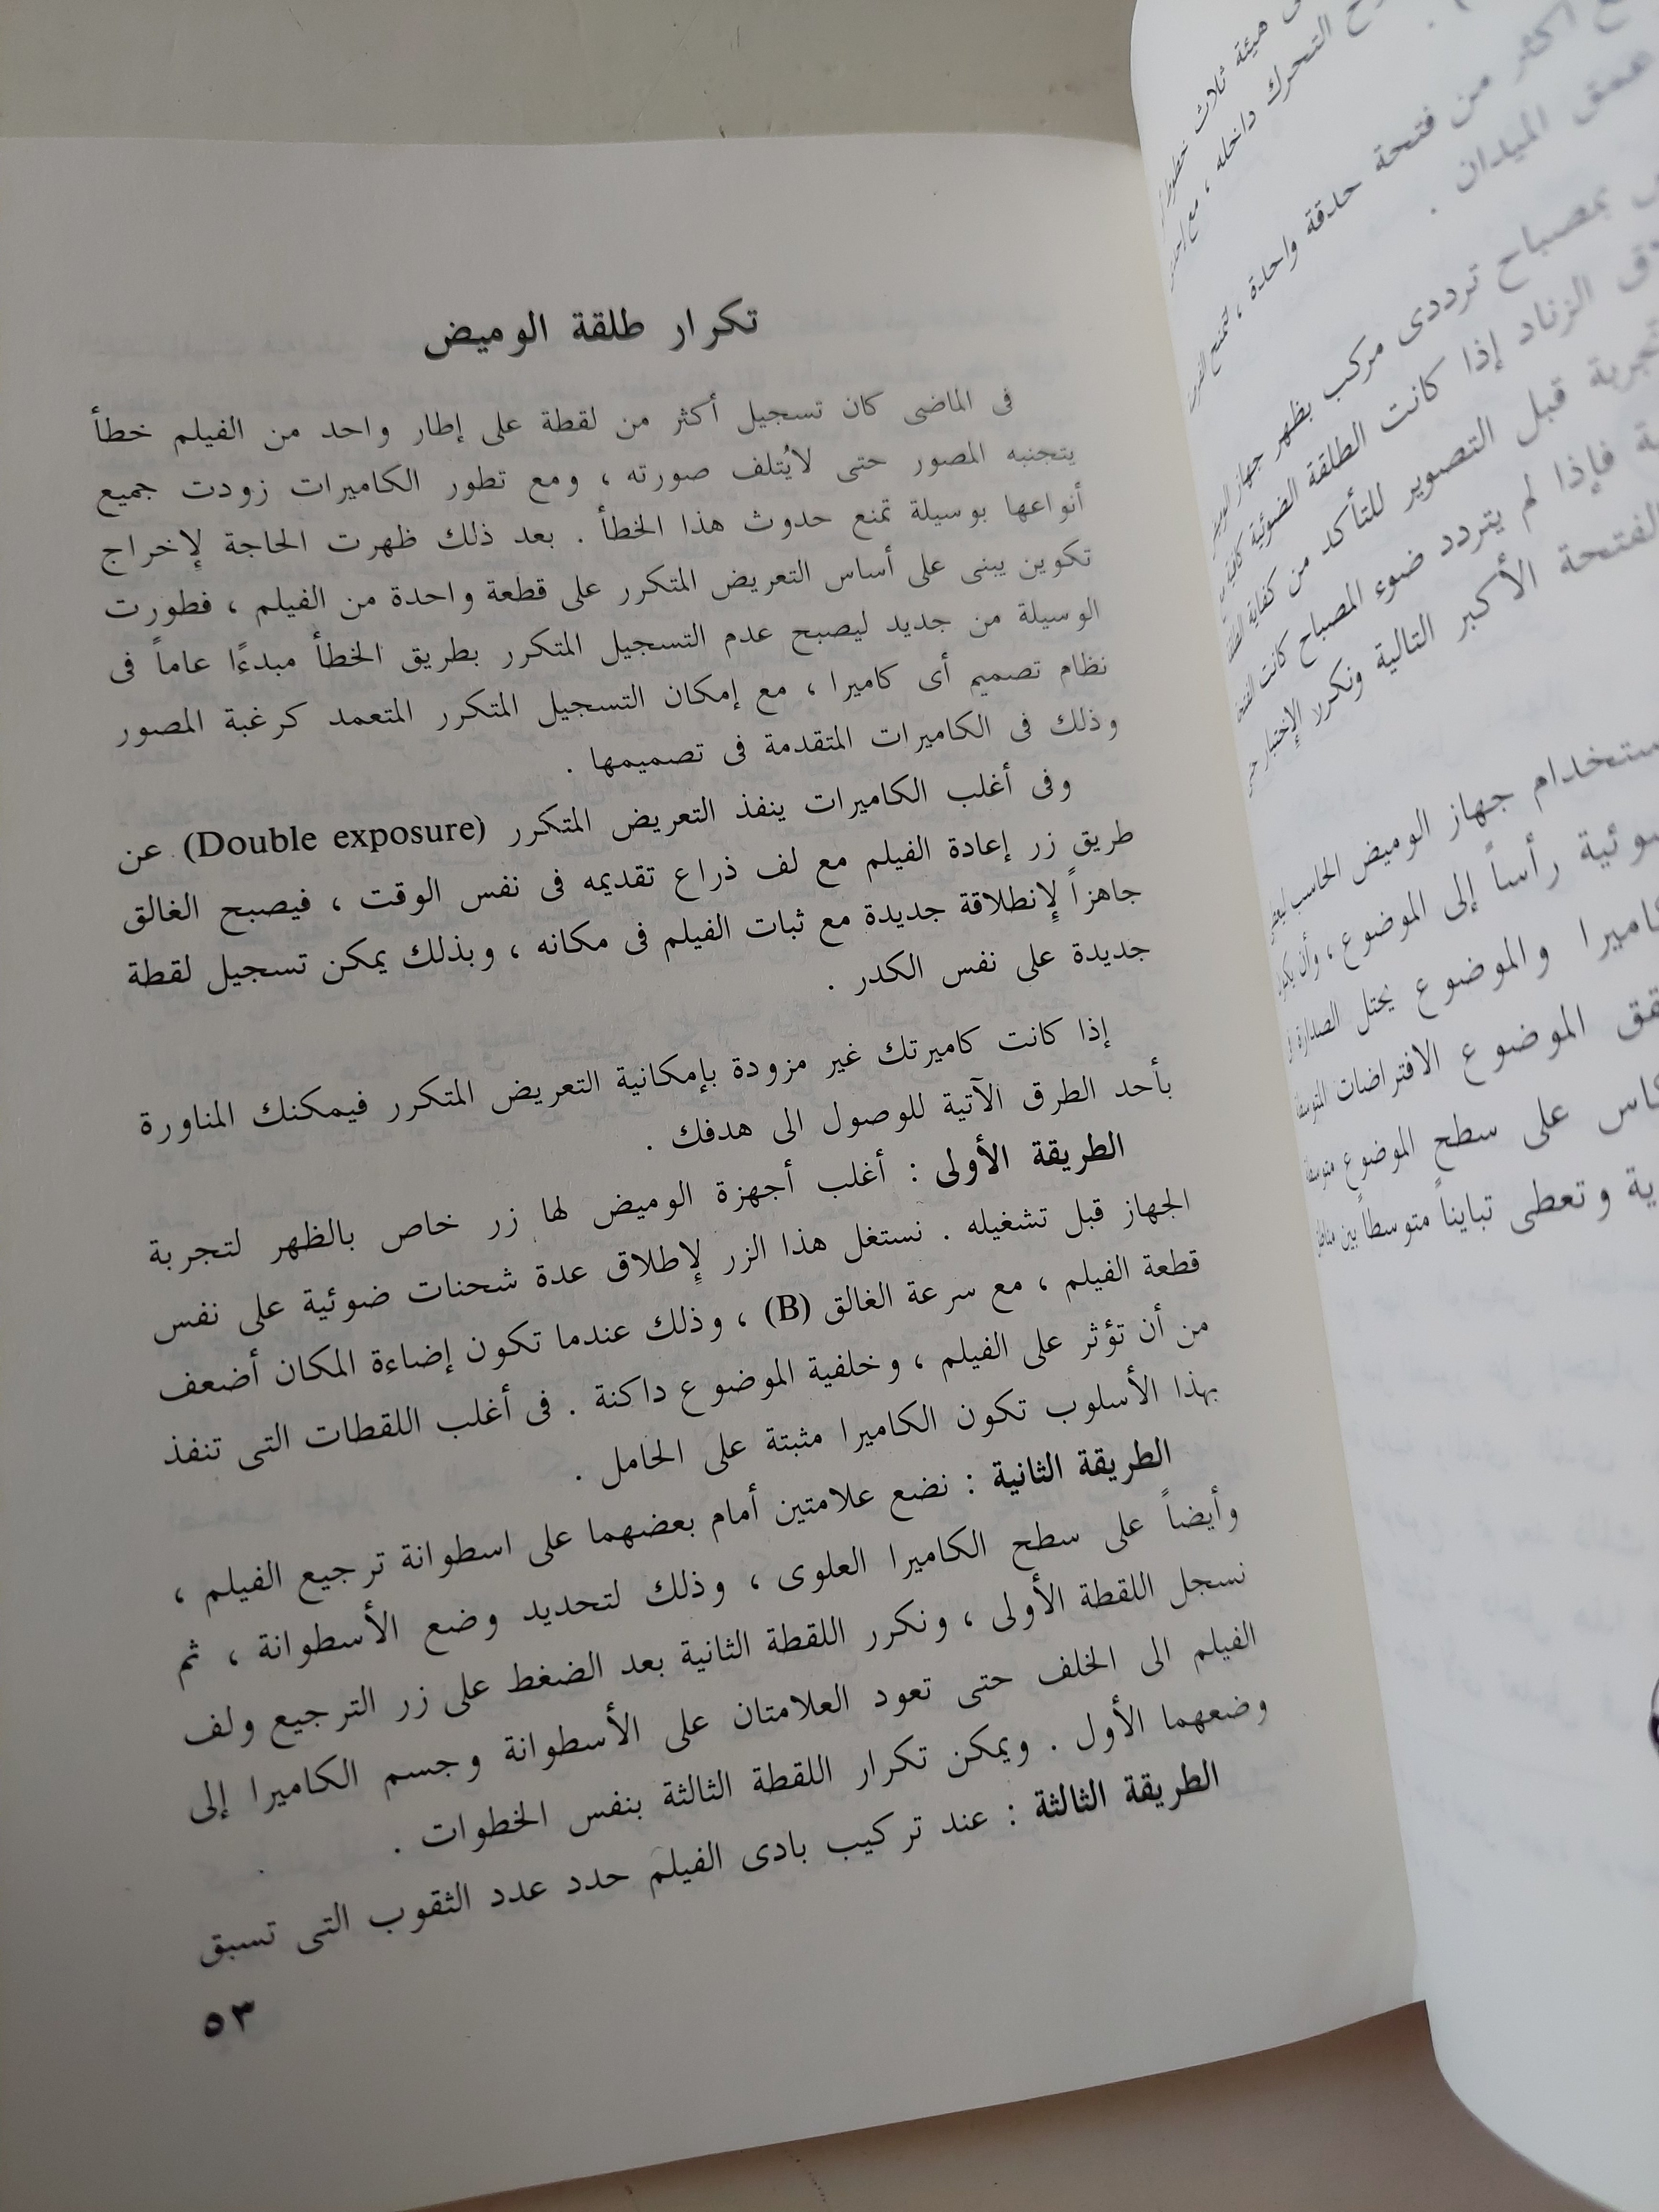 تكرار طلقة الوميض
فى الماضى كان تسجيل أكثر من لقطة على إطار واحد من الفيلم خطأ
يتجنبه المصور حتى لايُتلف صورته ، ومع تطور الكاميرات زودت جميع
أنواعها بوسيلة تمنع حدوث هذا الخطأ . بعد ذلك ظهرت الحاجة لإخراج
تكوين يبنى على أساس التعريض المتكرر على قطعة واحدة من الفيلم ، فطورت
الوسيلة من جديد ليصبح عدم التسجيل المتكرر بطريق الخطأ مبدءًا عاماً فى
نظام تصميم أى كاميرا ، مع إمكان التسجيل المتكرر المتعمد كرغبة المصور
وذلك فى الكاميرات المتقدمة فى تصميمها .
وفى أغلب الكاميرات ينفذ التعريض المتكرر (Double exposure) عن
طريق زر إعادة الفيلم مع لف ذراع تقديمه فى نفس الوقت ، فيصبح الغالق
جاهزاً لإنطلاقة جديدة مع ثبات الفيلم فى مكانه ، وبذلك يمكن تسجيل لقطة
جديدة على نفس الكدر .
إذا كانت كاميرتك غير مزودة بإمكانية التعريض المتكرر فيمكنك المناورة
بأحد الطرق الآتية للوصول الى هدفك .
الطريقة الأولى : أغلب أجهزة الوميض لها زر خاص بالظهر لتجربة
الجهاز قبل تشغيله . نستغل هذا الزر لإطلاق عدة شحنات ضوئية على نفس
قطعة الفيلم ، مع سرعة الغالق (B) ، وذلك عندما تكون إضاءة المكان أضعف
من أن تؤثر على الفيلم ، وخلفية الموضوع داكنة . فى أغلب اللقطات التى تنفذ
بهذا الأسلوب تكون الكاميرا مثبتة على الحامل .
الطريقة الثانية : نضع علامتين أمام بعضهما على اسطوانة ترجيع الفيلم ،
وأيضاً على سطح الكاميرا العلوى ، وذلك لتحديد وضع الأسطوانة ، ثم
نسجل اللقطة الأولى ، ونكرر اللقطة الثانية بعد الضغط على زر الترجيع ولف
الفيلم الى الخلف حتى تعود العلامتان على الأسطوانة وجسم الكاميرا إلى
وضعهما الأول . ويمكن تكرار اللقطة الثالثة بنفس الخطوات .
الطريقة الثالثة : عند تركيب بادى الفيلم حدد عدد الثقوب التى تسبق
٥٣
هيئة ثلاث خطوط
التحرك داخله ، مع
أكثر من فتحة حدقة واحدة ،
عمق الميدان .
بمصباح ترددى مركب بظهر جهاز
الزناد إذا كانت الطلقة الضوئية كافية
تجربة قبل التصوير للتأكد من كفاية
فإذا لم يتردد ضوء المصباح كانت
الفتحة الأكبر التالية ونكرر الإختبار حتى
ستخدام جهاز الوميض الحاسب
ضوئية رأساً إلى الموضوع ، وأن يكون
كاميرا والموضوع يحتل الصدارة
الموضوع الافتراضات
على سطح الموضوع
وتعطى تبايناً متوسطاً بين